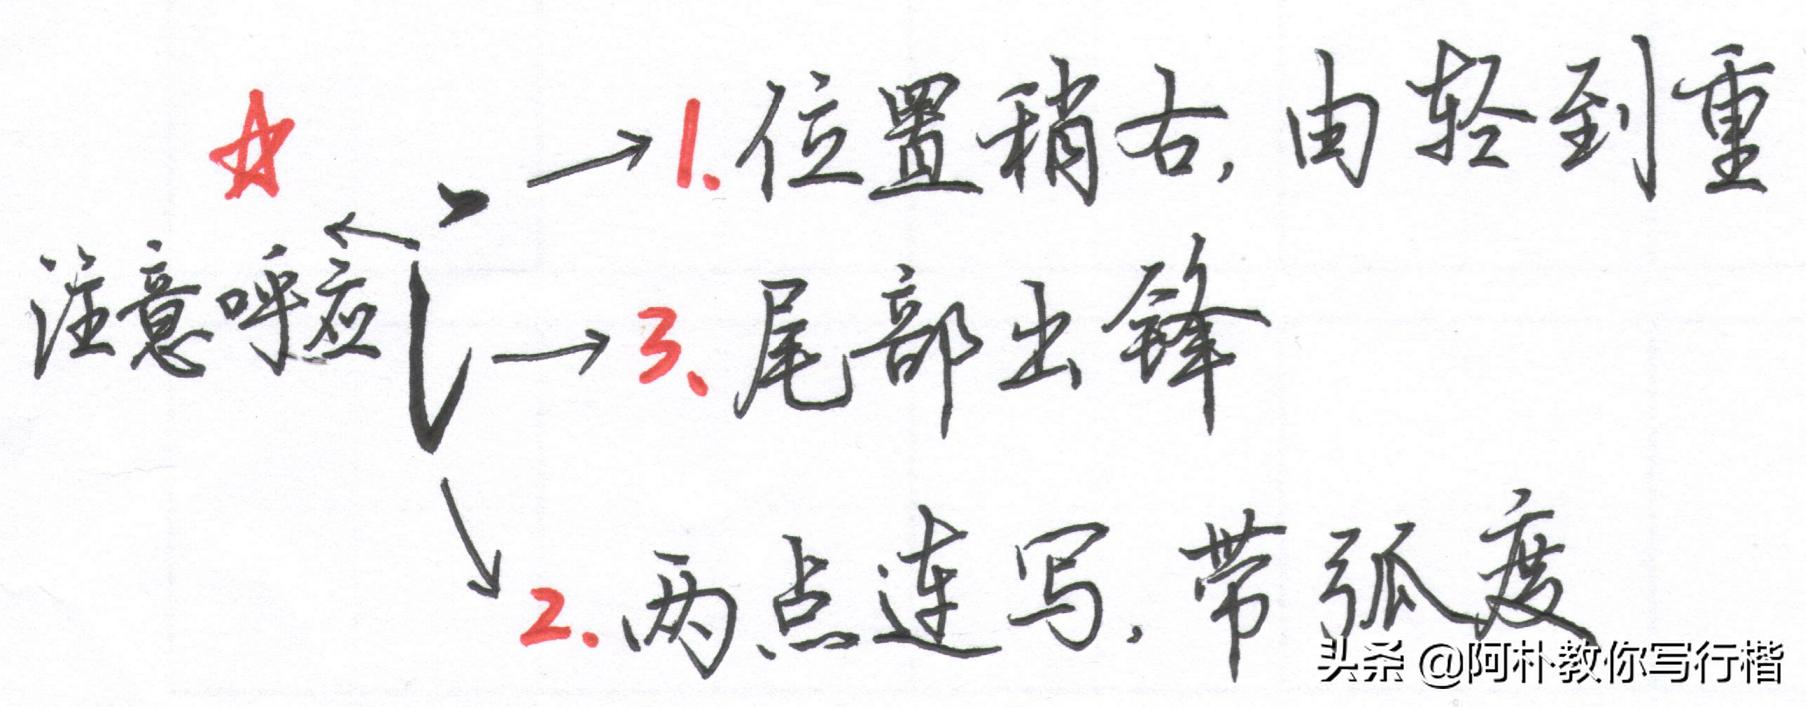 1.位置稍右,由轻到重
注意呼应
3、尾部出锋
2.两点连写,带弧度
头条 @阿朴教你写行楷